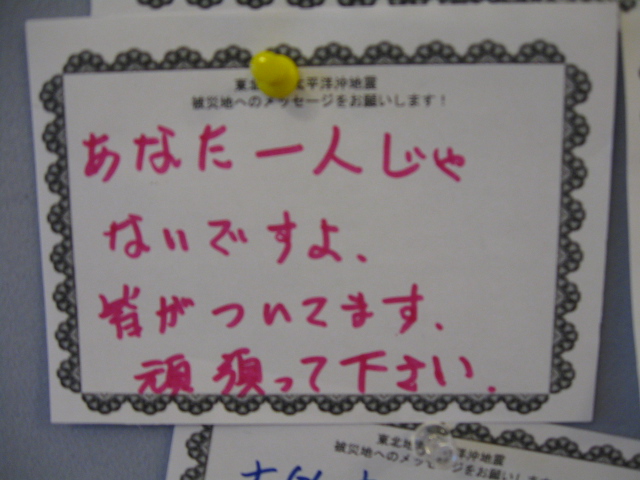 東北 平洋沖地震
被災地へのメッセージをお願いします！
あなた一人じゃ
ないですよ、
皆がついてます、
頑須って下さい、
東北地 洋沖地震
被災地へのメ ージをお願いします